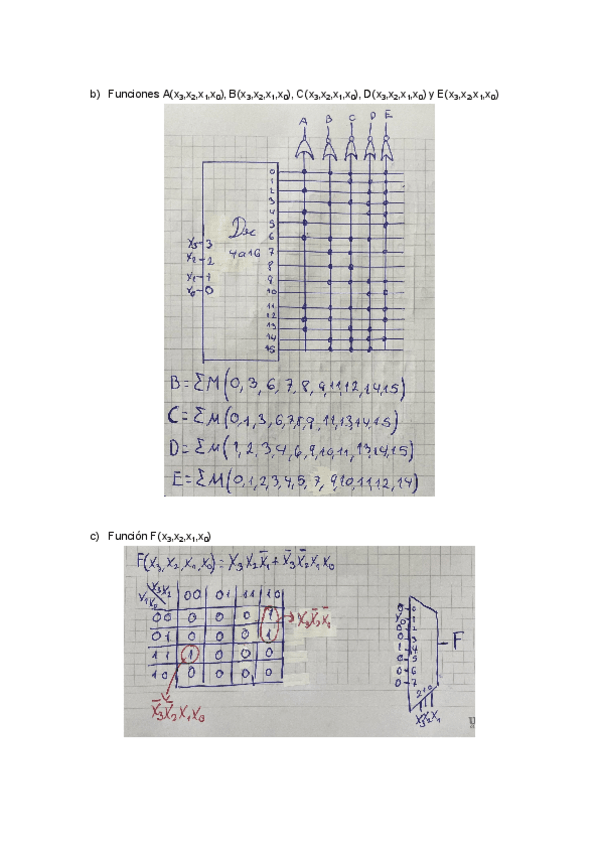 b) Funciones A(x₃,x₂,x₁,x₀), B(x₃,x₂,x₁,x₀), C(x₃,x₂,x₁,x₀), D(x₃,x₂,x₁,x₀) y E(x₃,x₂,x₁,x₀)
A B C D E
0
1
2
3
4
5
6
7
8
9
10
11
12
13
14
15
Dec
4a16
X₃ 3
X₂ 2
X₁ 1
X₀ 0
B = ΣM(0,3,6,7,8,9,11,12,14,15)
C = ΣM(0,1,3,6,7,8,9,11,13,14,15)
D = ΣM(1,2,3,4,6,9,10,11,13,14,15)
E = ΣM(0,1,2,3,4,5,7,9,10,11,12,14)
c) Función F(x₃,x₂,x₁,x₀)
F(X₃,X₂,X₁,X₀) = X₃X̄₂X̄₁ + X̄₃X̄₂X₁X₀
X₃X₂ 00 01 11 10
X₁X₀
00 0 0 0 1
01 0 0 0 1
11 1 0 0 0
10 0 0 0 0
X₃X̄₂X̄₁
X̄₃X̄₂X₁X₀
0 0
X₀ 1
0 2
0 3
1 4
0 5
0 6
0 7
2 1 0
X₃X₂X₁
F